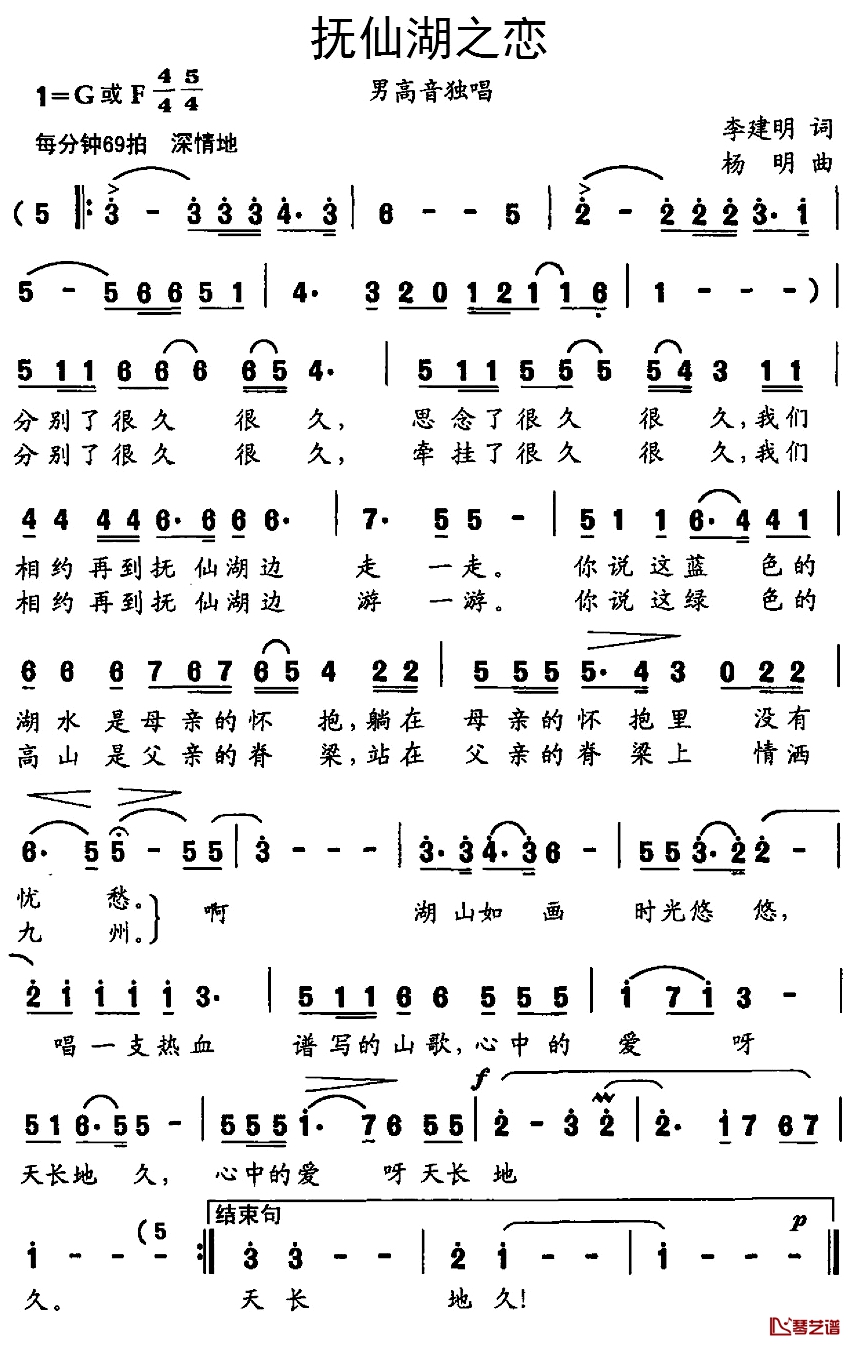 抚仙湖之恋
1=G或F 4/4 5/4
男高音独唱
每分钟69拍 深情地
李建明 词
杨 明 曲
(5 ‖: 3̇ - 3̇ 3̇ 3̇ 4̇. 3̇ | 6 - - 5 | 2̇ - 2̇ 2̇ 2̇ 3̇. 1̇ |
5 - 5 6 6 5 1 | 4. 3 2 0 1 2 1 1 6̣ | 1 - - - )
5 1 1 6 6 6 6 5 4. | 5 1 1 5 5 5 5 4 3 1 1 |
分别了很久 很 久, 思念了很久 很 久,我们
分别了很久 很 久, 牵挂了很久 很 久,我们
4 4 4 4 6. 6 6 6. | 7. 5 5 - | 5 1 1 6. 4 4 1 |
相约再到抚 仙湖边 走 一走。 你说这蓝 色的
相约再到抚 仙湖边 游 一游。 你说这绿 色的
6 6 6 7 6 7 6 5 4 2 2 | 5 5 5 5 5. 4 3 0 2 2 |
湖水是母亲的怀 抱,躺在 母亲的怀抱里 没有
高山是父亲的脊 梁,站在 父亲的脊梁上 情洒
6. 5 5 - 5 5 | 3̇ - - - | 3̇. 3̇ 4̇. 3̇ 6 - | 5 5 3̇. 2̇ 2̇ - |
忧 愁。} 啊 湖山如 画 时光悠 悠,
九 州。}
2̇ 1̇ 1̇ 1̇ 1̇ 3. | 5 1 1 6 6 5 5 5 | 1̇ 7 1̇ 3 - |
唱一支热血 谱写的山歌,心中的 爱 呀
f
5 1 6. 5 5 - | 5 5 5 1̇. 7 6 5 5 | 2̇ - 3̇ 2̇ | 2̇. 1̇ 7 6 7 |
天长地 久, 心中的爱 呀天长 地
结束句 p
1̇ - - (5 :‖ 3̇ 3̇ - - | 2̇ 1̇ - - | 1̇ - - - ‖
久。 天 长 地 久!
琴艺谱